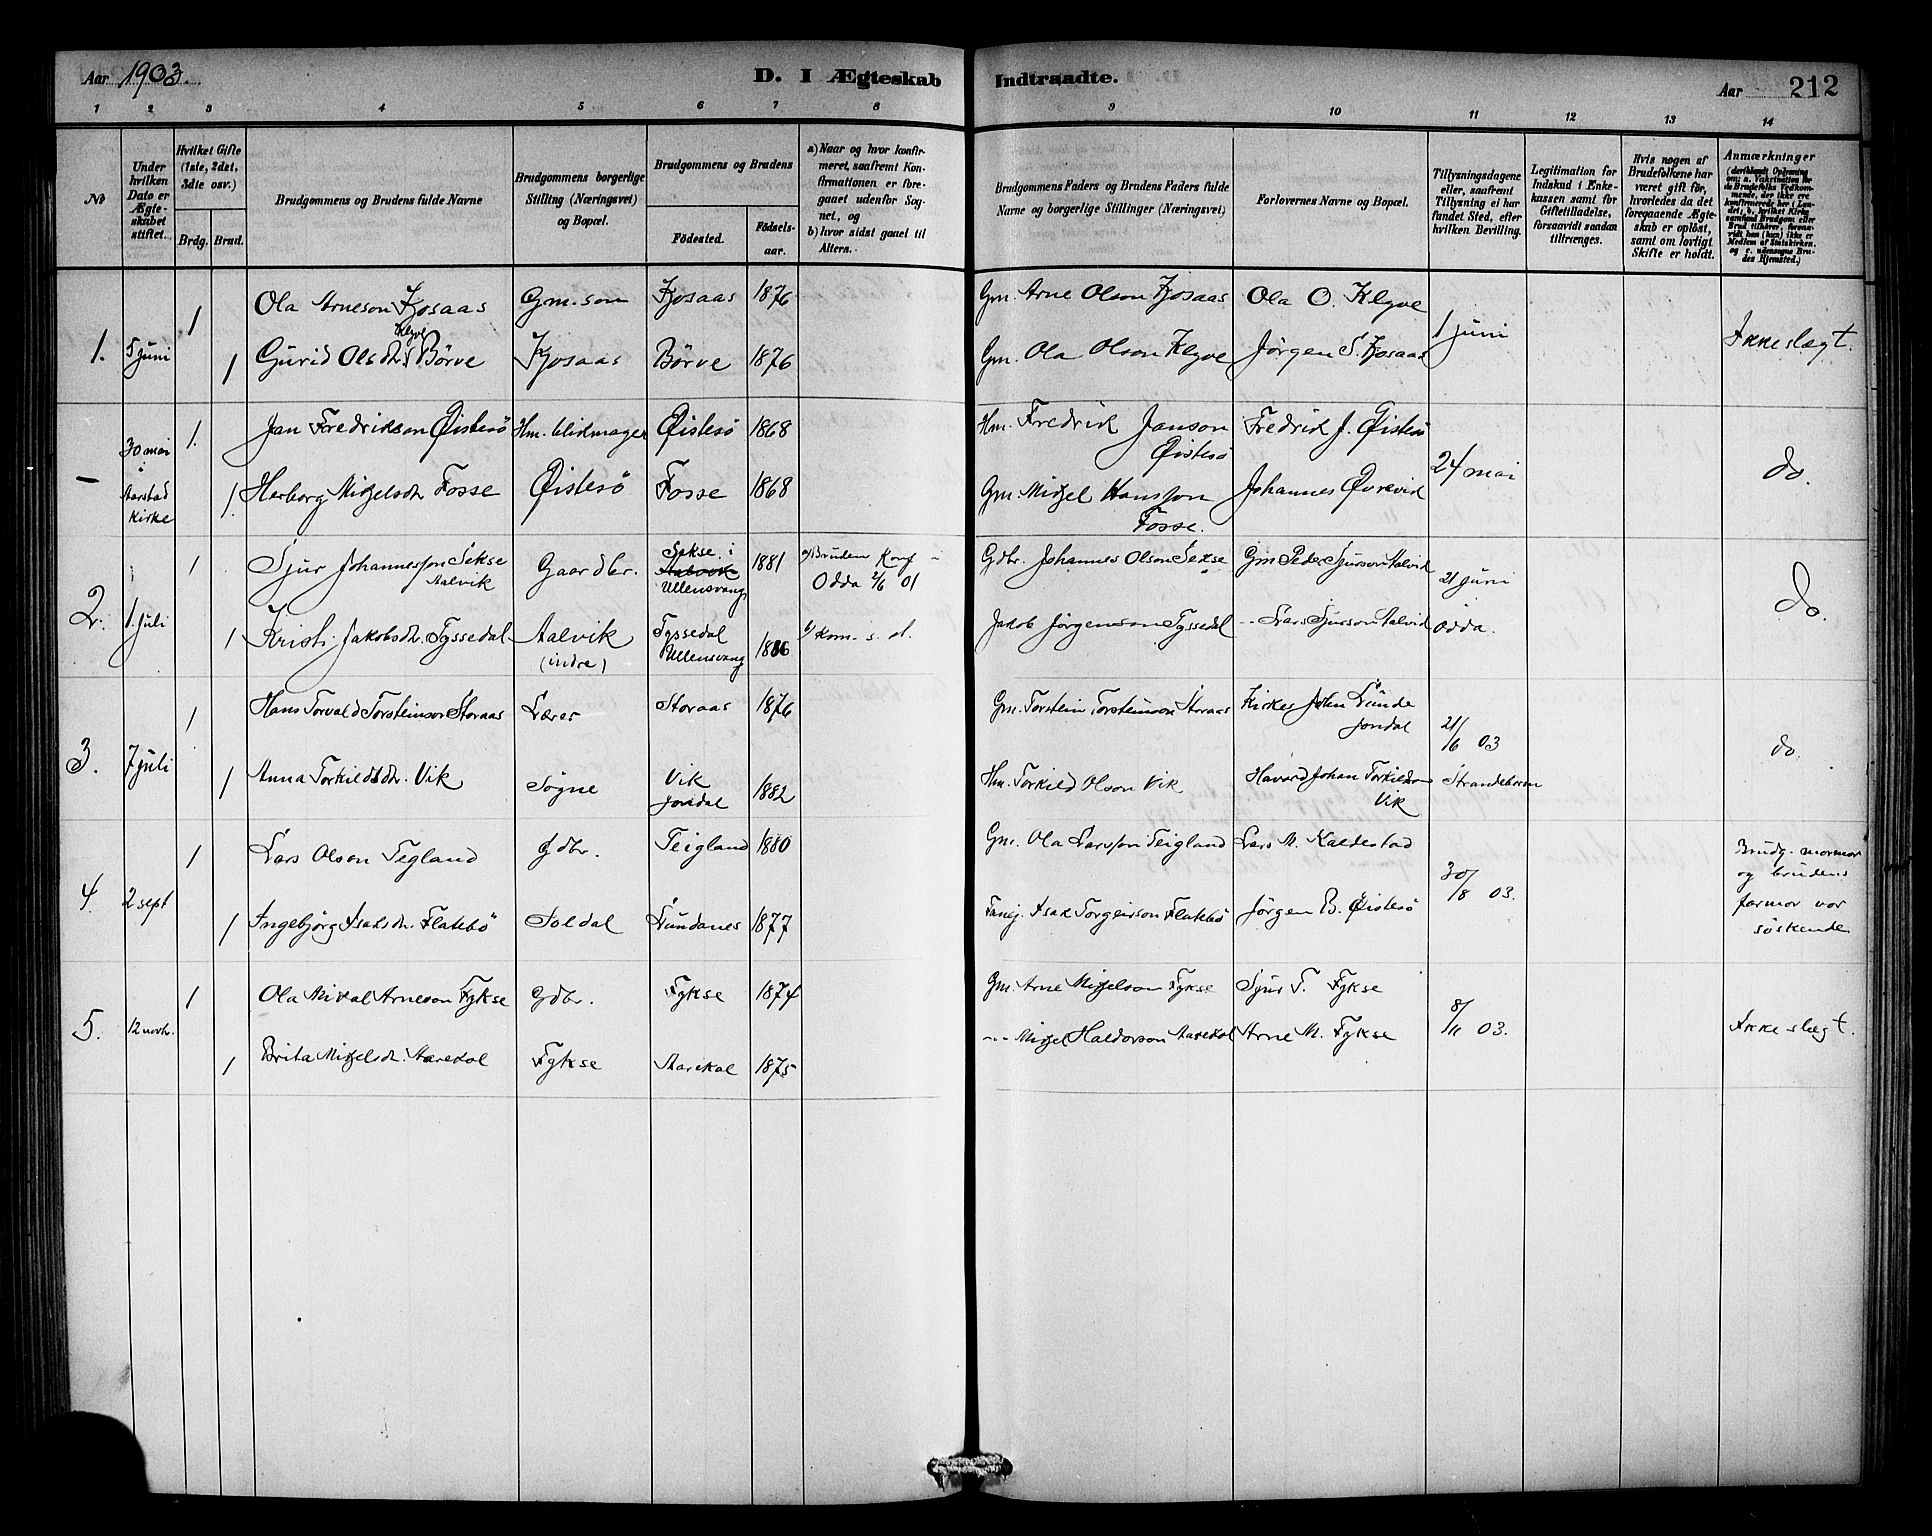 Aar 1903. D. I Ægteskab Indtraadte. Aar 212
1 2 3 4 5 6 7 8 9 10 11 12 13 14
No
Under hvilken Dato er Ægteskabet stiftet.
Hvilket Gifte (1ste, 2det, 3die osv.)
Brdg. Brud.
Brudgommens og Brudens fulde Navne
Brudgommens borgerlige Stilling (Næringsvei) og Bopæl.
Brudgommens og Brudens
Födested. Födselsaar.
a) Naar og hvor konfirmeret, saafremt Konfirmationen er foregaaet udenfor Sognet, og
b) hvor sidst gaaet til Alters.
Brudgommens Faders og Brudens Faders fulde Navne og borgerlige Stillinger (Næringsvei)
Forlovernes Navne og Bopæl.
Tillysningsdagene eller, saafremt Tillysning ei har fundet Sted, efter hvilken Bevilling.
Legitimation for Indskud i Enkekassen samt for Giftetilladelse, forsaavidt saadan tiltrænges.
Hvis nogen af Brudefolkene har været gift før, hvorledes da det foregaaende Ægteskab er oplöst, samt om lovligt Skifte er holdt.
Anmærkninger
1. 5 juni
1 Ola Arneson Fjosaas Gm. son Fjosaas 1876 Gm. Arne Olson Fjosaas Ola O. Klyve
Klyve
1 Gurid Olsdtr. Börve Fjosaas Börve 1876 Gm. Ola Olson Klyve Jörgen S. Fjosaas
1 juni Ikke slegt.
- 30 mai i Aarstad Kirke
1. Jan Fredrikson Øistesö Hm. blikmager Øistesö 1868 Hm. Fredrik Janson Øistesö Fredrik J. Øistesö
1. Herborg Mikjelsdtr. Fosse Øistesö Fosse 1868 Gm. Mikjel Hansson Fosse. Johannes Øvrevik
24 mai do.
2. 1. juli
1 Sjur Johannesson Sekse Aalvik Gaardbr. Sekse i Aalvik Ullensvang 1881 a) Bruden konf i Odda 2/6 01 Gdbr. Johannes Olson Sekse Gm Peder Sjurson Aalvik
1 Kristi Jakobsdtr. Tyssedal Aalvik (indre) Tyssedal Ullensvang 1886 b) kom. s. d. Jakob Jörgenson Tyssedal -- Lars Sjurson Aalvik
21 juni Odda. do.
3. 7 juli
1 Hans Torvald Torsteinson Storaas Lærer Storaas 1876 Gm. Torstein Torsteinson Storaas Kirkes. John Lunde Jondal
1 Anna Torkildsdtr. Vik Sogne Vik Jondal 1882 Hm. Torkild Olson Vik Havard Johan Torkildson Vik
21/6 03 Strandebarm do.
4. 2 sept
1 Lars Olson Tegland Gdbr. Teigland 1880 Gm. Ola Larsson Teigland Lars M. Kaldestad
1 Ingebjörg Isaksdtr. Flatebö Soldal Lundanes 1877 Isak Torgeirson Flatebö Jörgen B. Øistesö
30/8 03. Brudg. mormor og brudens farmor var söskende
5. 12 novbr.
1 Ola Mikal Arneson Fykse Gdbr. Fykse 1874 Gm. Arne Mikjelson Fykse Sjur T. Fykse
1 Brita Mikjelsdtr. Aarekol Fykse Aarekol 1875 -- Mikjel Haldorson Aarekol Arne M. Fykse
8/11 03. Ikke slegt.